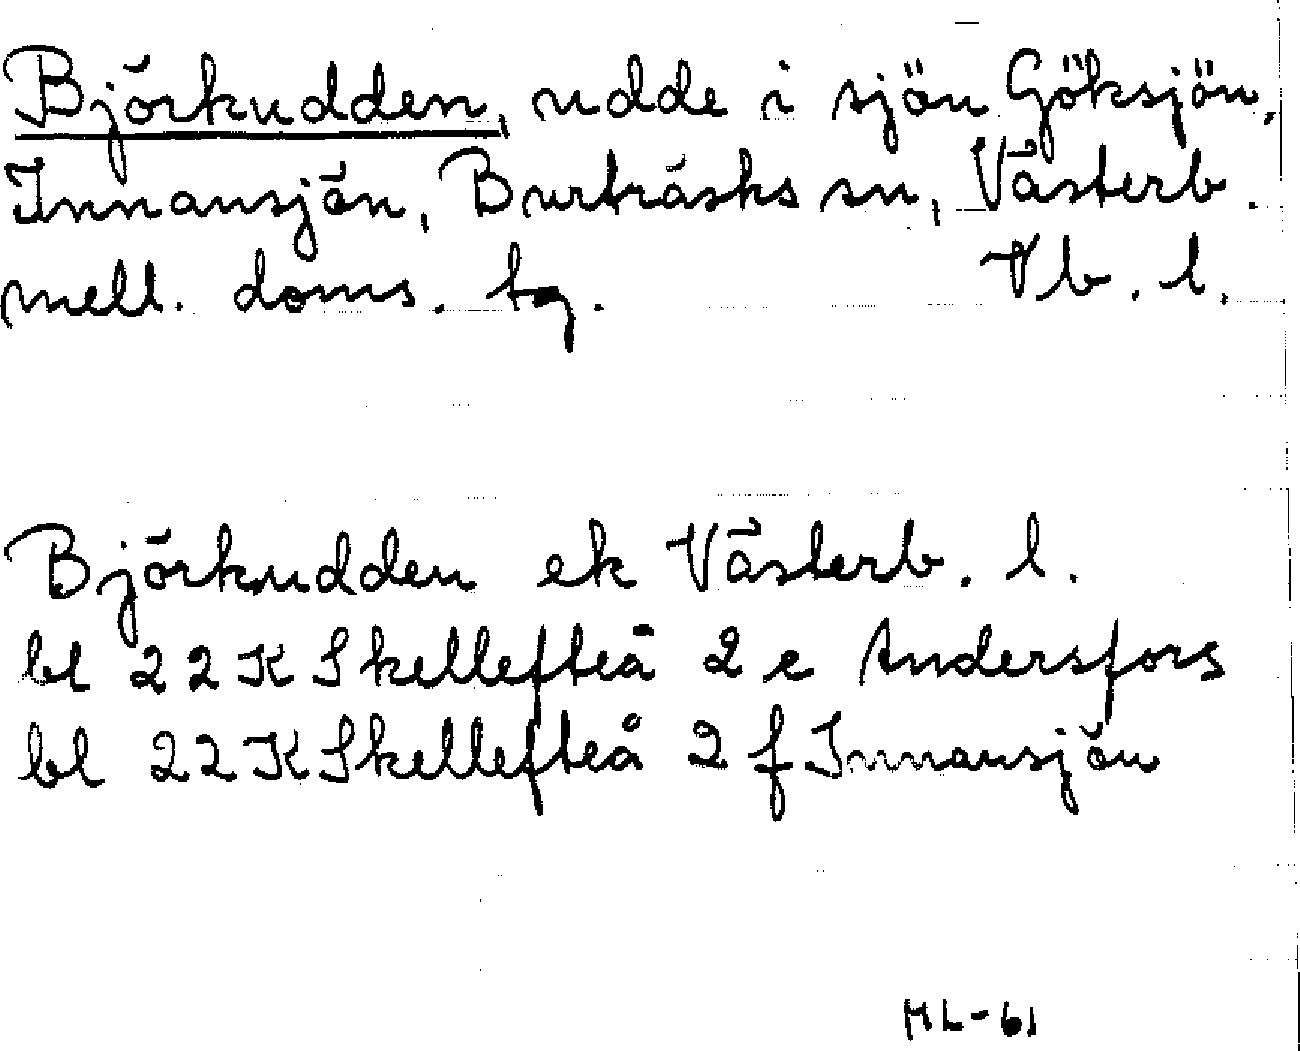 Björkudden, udde i sjön Göksjön,
Innansjön, Burträsks sn, Västerb.
mell. doms. tg. Vb. l.
Björkudden ek Västerb. l.
bl 22K Skellefteå 2 e Andersfors
bl 22K Skellefteå 2 f Innansjön
ML-61